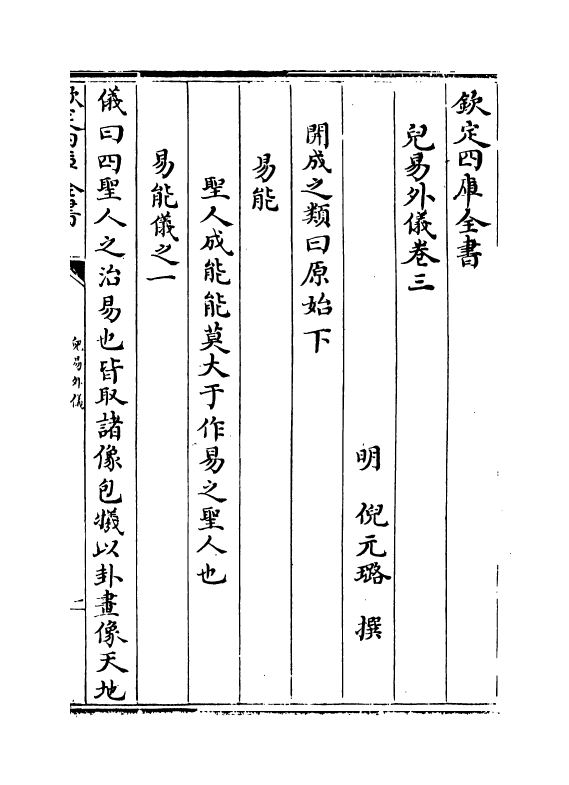 欽定四庫全書
兒易外儀卷三
明 倪元璐 撰
開成之類曰原始下
易能
聖人成能能莫大于作易之聖人也
易能儀之一
儀曰四聖人之治易也皆取諸像包犧以卦畫像天地
欽定四庫全書
兒易外儀